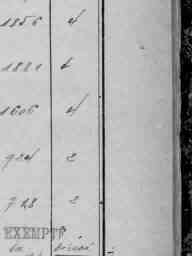 1856 4
1881 6
1606 4
924 2
728 2
EXEMPT